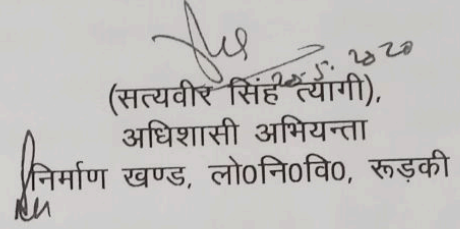 20.5.2020
(सत्यवीर सिंह त्यागी),
अधिशासी अभियन्ता
निर्माण खण्ड, लो०नि०वि०, रूड़की